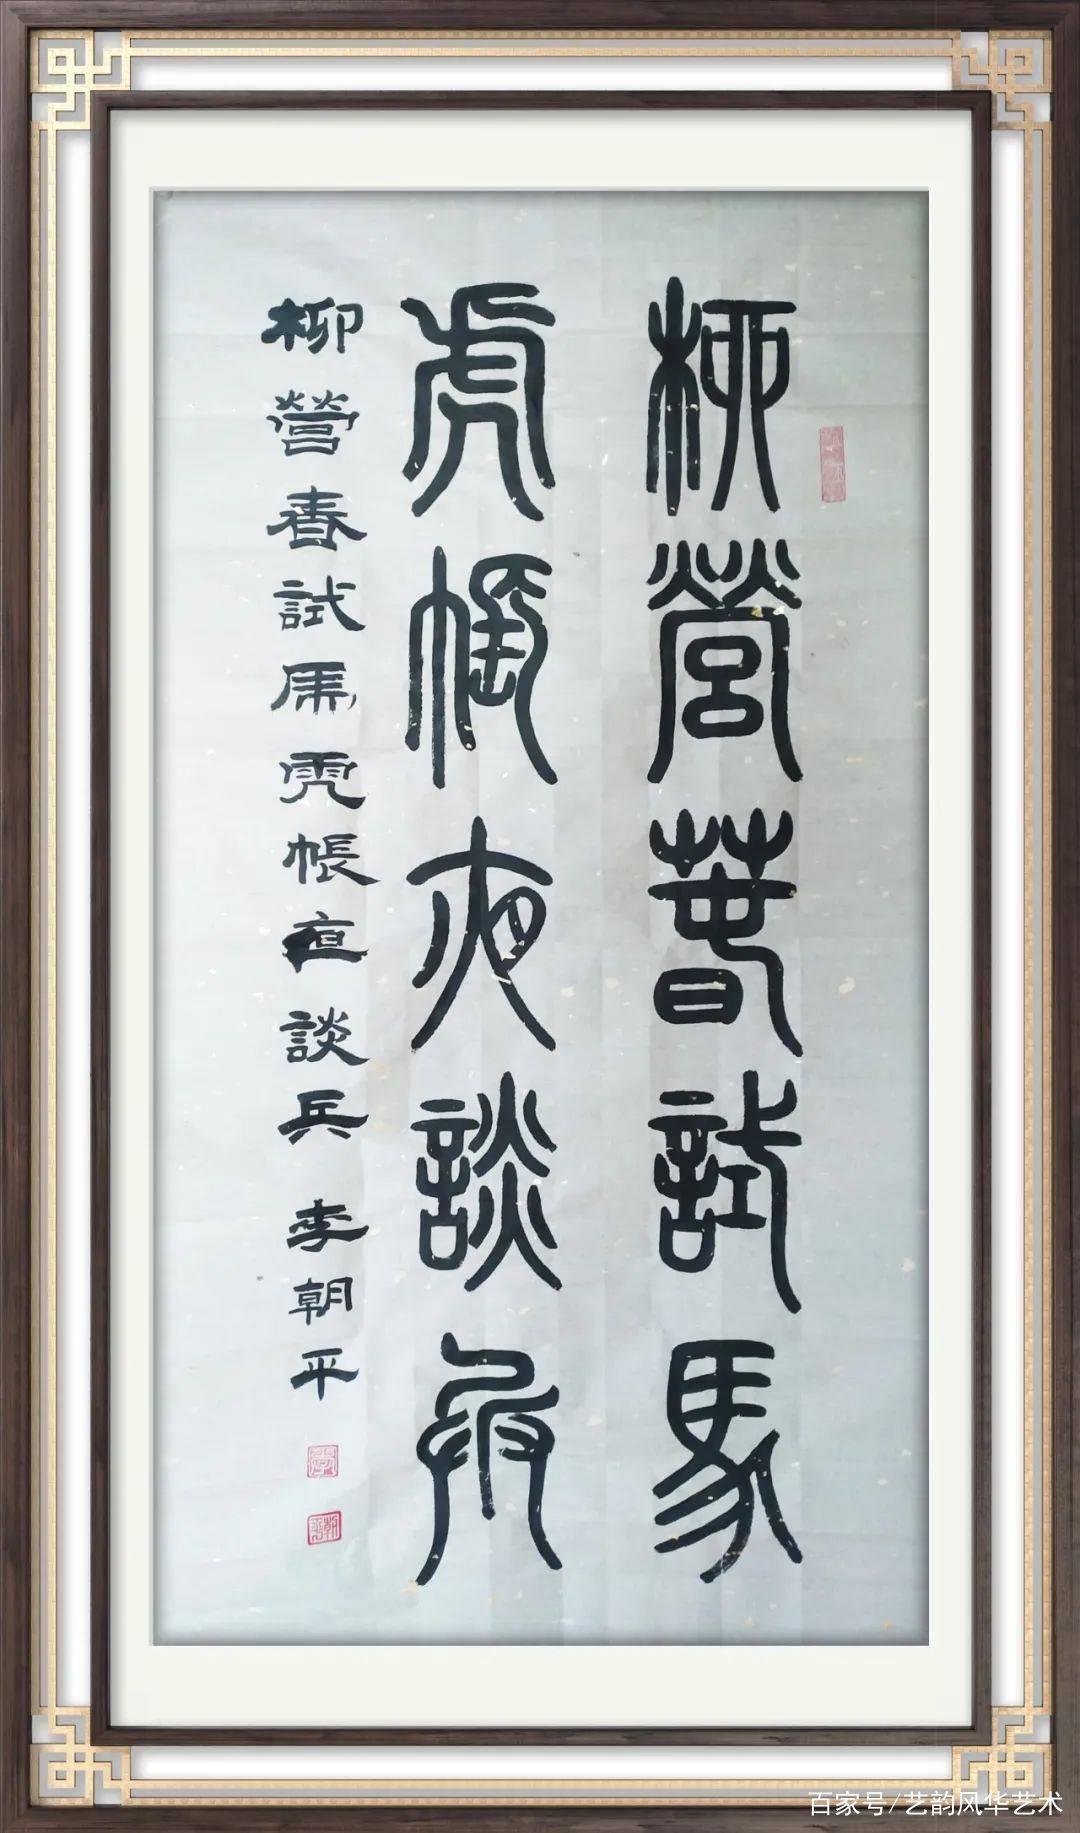 柳營春試馬
虎帳夜談兵
柳營春試馬虎帳夜談兵 李朝平
百家号/艺韵风华艺术